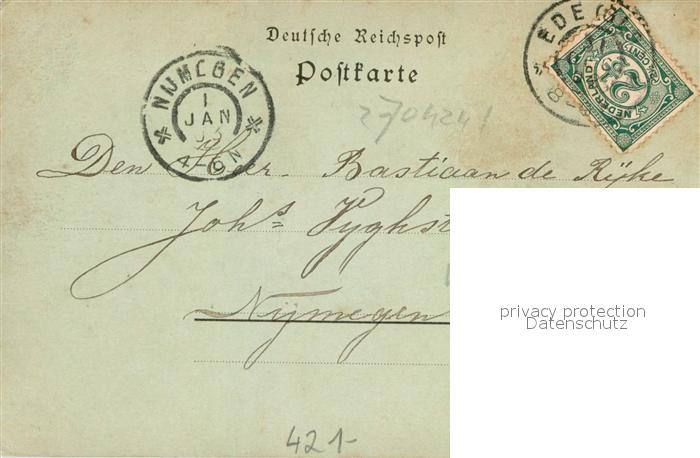 Deutsche Reichspost
Postkarte
EDE
NEDERLAND
2½ CENT
NIJMEGEN
1
JAN
4-6 N
2704241
Den Heer. Bastiaan de Rijke
Joh.s Vyghst
Nijmegen
privacy protection
Datenschutz
421-